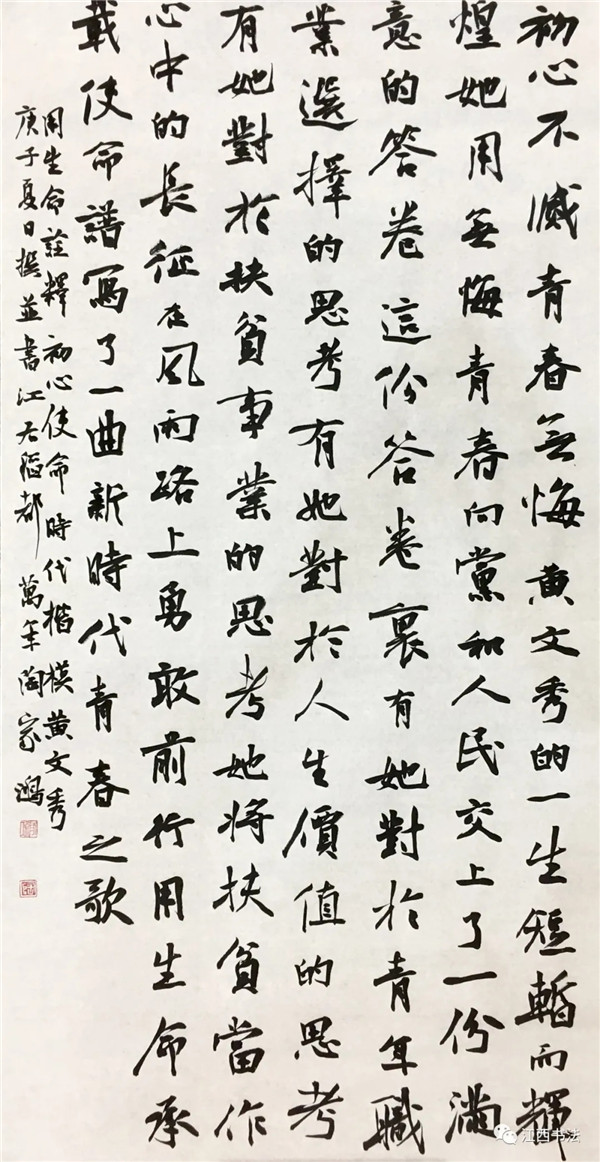 初心不滅青春無悔黄文秀的一生短暫而輝
煌她用無悔青春向黨和人民交上了一份滿
意的答卷這份答卷裏有她對於青年職
業選擇的思考有她對於人生價值的思考
有她對於扶貧事業的思考她將扶貧當作
心中的長征在風雨路上勇敢前行用生命承
載使命譜寫了一曲新時代青春之歌
用生命詮釋初心使命時代楷模黄文秀
庚子夏日撰並書江右洪都萬年陶家鴻
江西书法